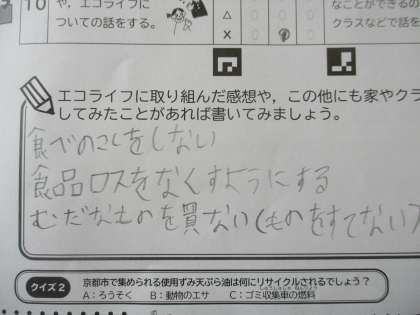 10
や,エコライフに
ついての話をする。
△
×
なことができるの
クラスなどで話を
エコライフに取り組んだ感想や,この他にも家やクラ
してみたことがあれば書いてみましょう。
食べのこしをしない
食品ロスをなくすようにする
むだなものを買ない(ものをすてない)
クイズ2 京都市で集められる使用ずみ天ぷら油は何にリサイクルされるでしょう?
A:ろうそく B:動物のエサ C:ゴミ収集車の燃料